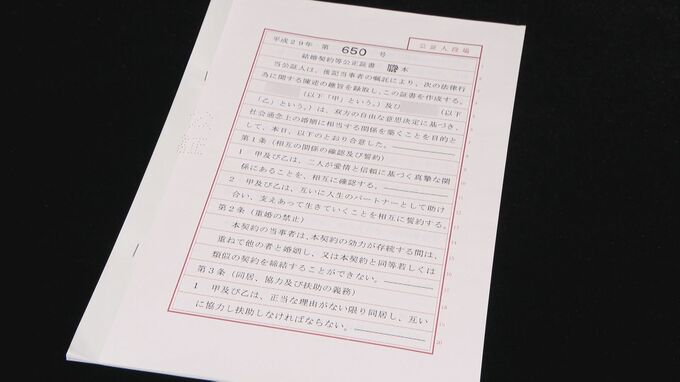 公証人役場
平成29年 第 650 号
結婚契約等公正証書 謄本
当公証人は、後記当事者の嘱託により、次の法律行
為に関する陳述の趣旨を録取し、この証書を作成する。
(以下「甲」という。)及び (以下
「乙」という。)は、双方の自由な意思決定に基づき、
社会通念上の婚姻に相当する関係を築くことを目的と
して、本日、以下のとおり合意した。
第1条(相互の関係の確認及び誓約)
1 甲及び乙は、二人が愛情と信頼に基づく真摯な関
係にあることを、相互に確認する。
2 甲及び乙は、互いに人生のパートナーとして助け
合い、支えあって生きていくことを相互に誓約する。
第2条(重婚の禁止)
本契約の当事者は、本契約の効力が存続する間は、
重ねて他の者と婚姻し、又は本契約と同等若しくは
類似の契約を締結することができない。
第3条(同居、協力及び扶助の義務)
1 甲及び乙は、正当な理由がない限り同居し、互い
に協力し扶助しなければならない。